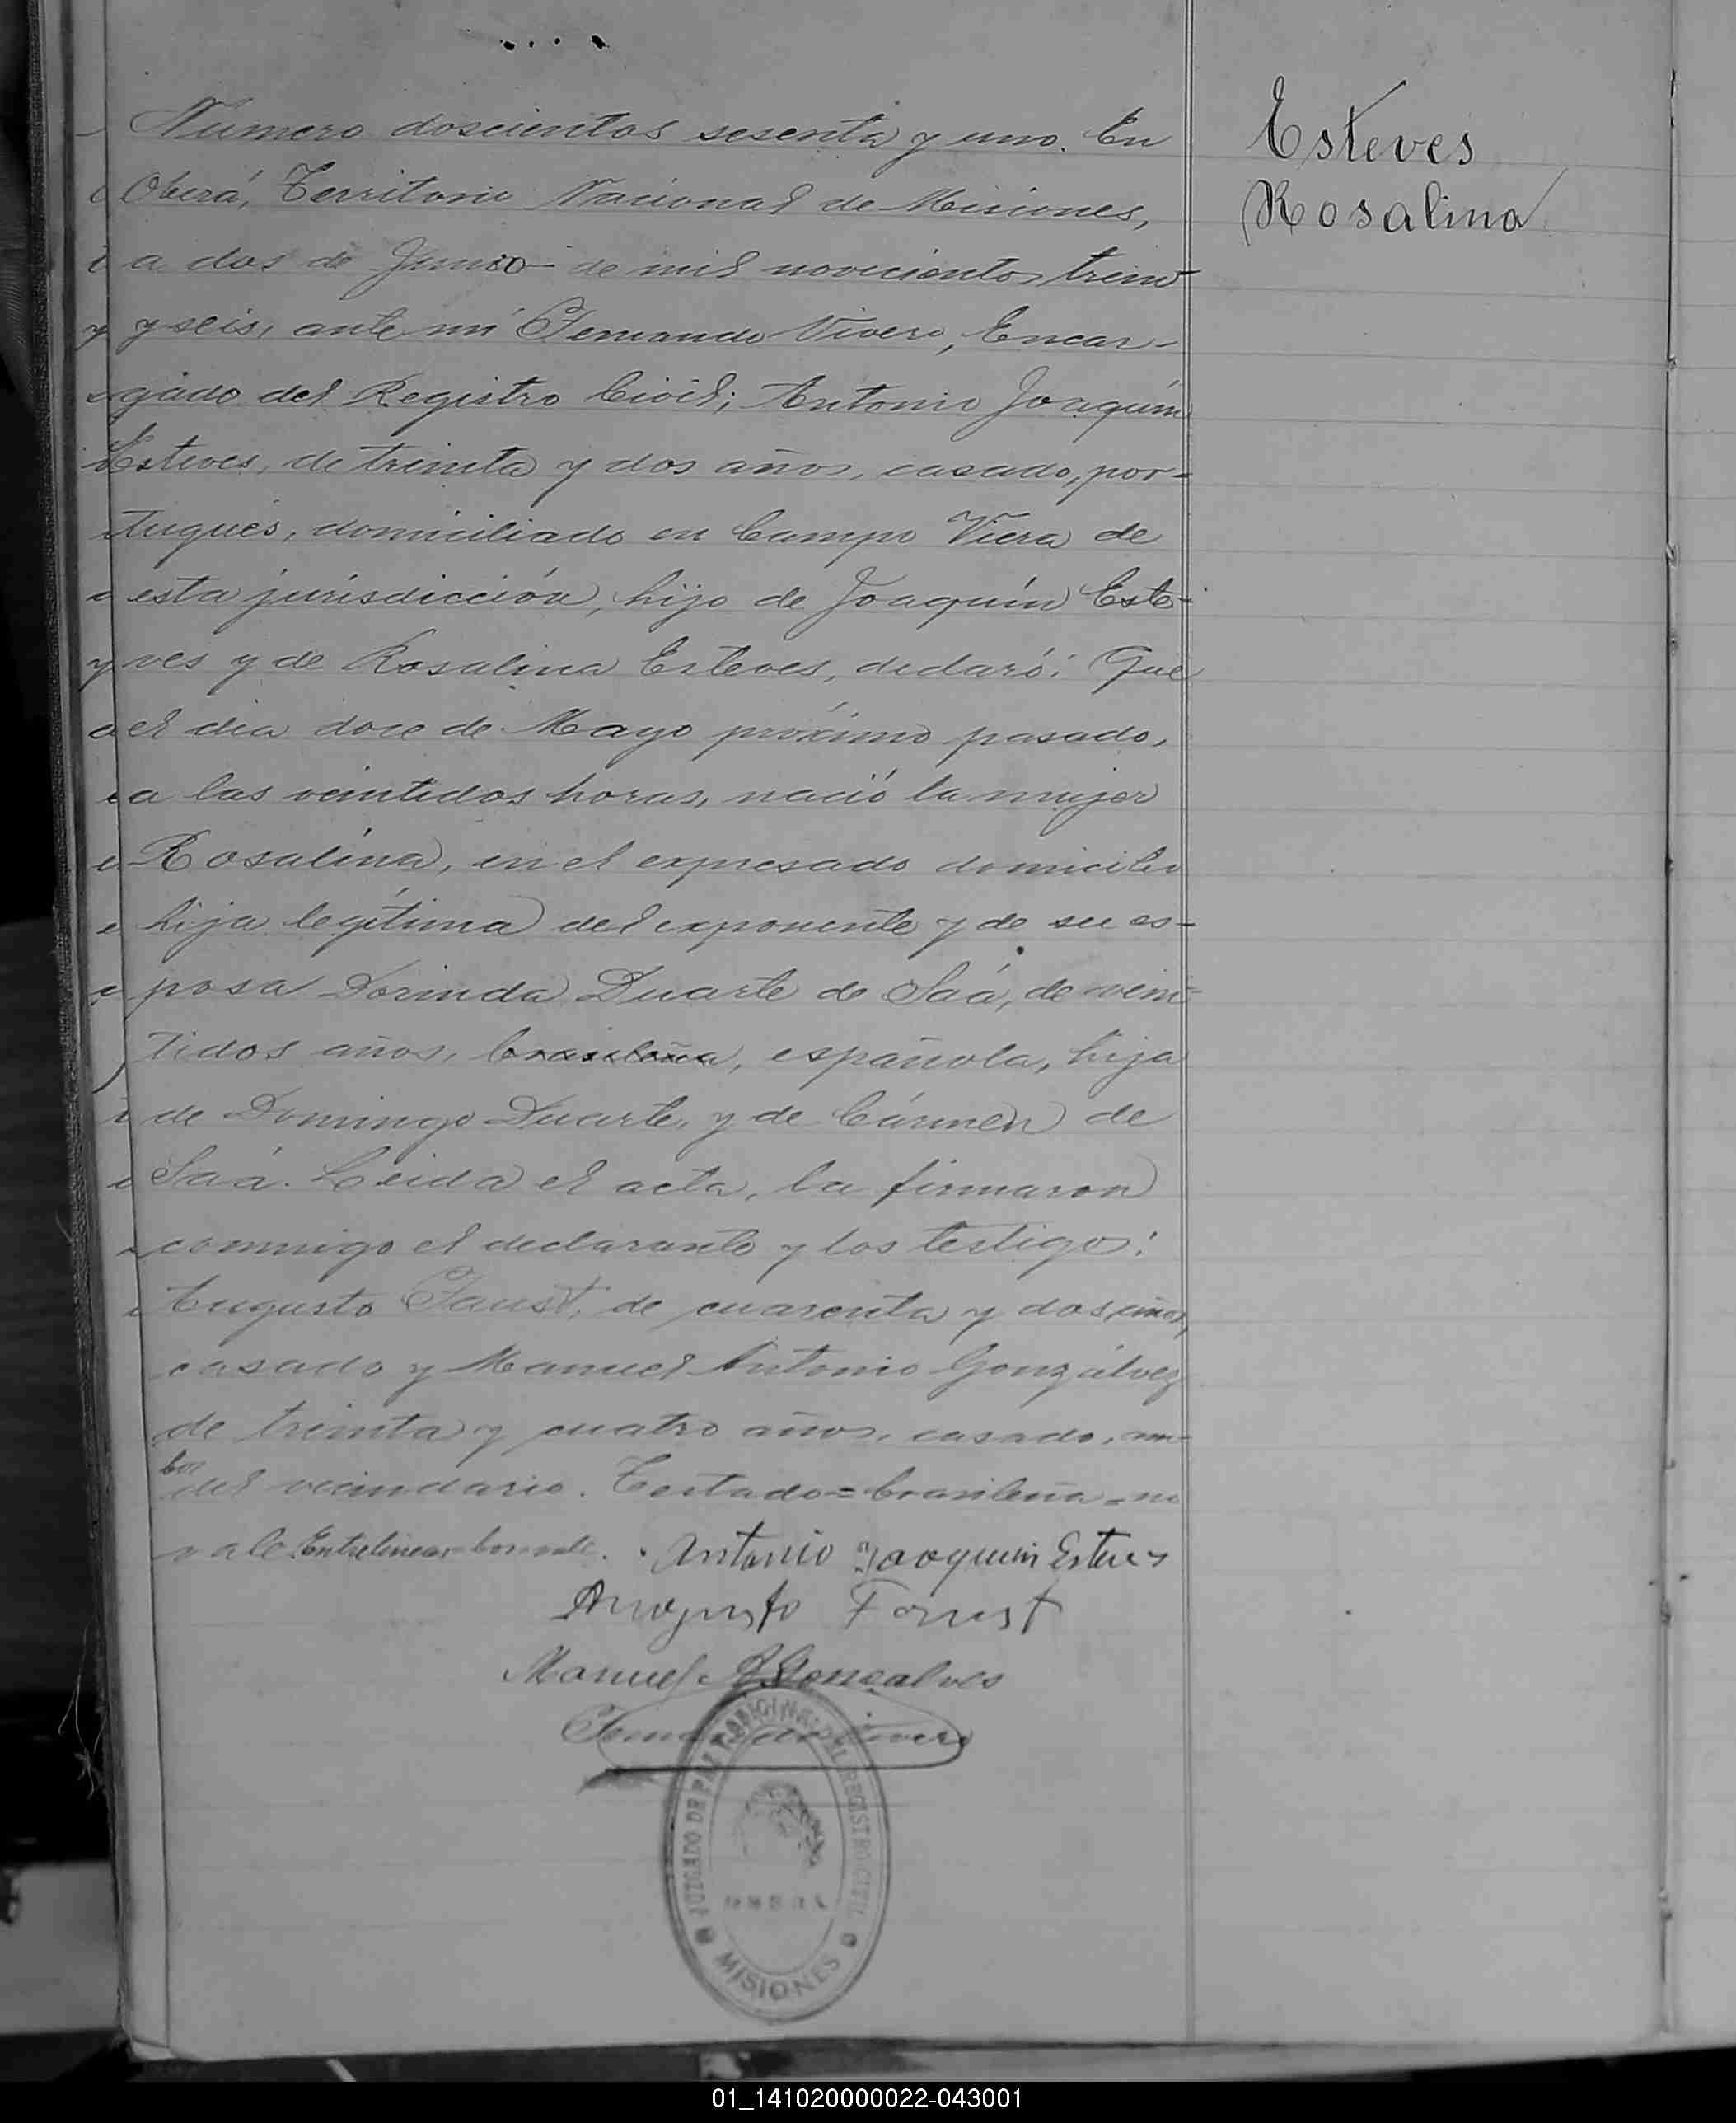 Esteves
Rosalina
Número doscientos sesenta y uno. En
Oberá, Territorio Nacional de Misiones,
a dos de Junio de mil novecientos trein-
y seis, ante mí Fernando Vivero, Encar-
gado del Registro Civil; Antonio Joaquín
Esteves, de treinta y dos años, casado, por-
tugués, domiciliado en Campo Viera de
esta jurisdicción, hijo de Joaquín Este-
ves y de Rosalina Esteves, declaró: Que
el día doce de Mayo próximo pasado,
a las veintidos horas, nació la mujer
Rosalina, en el expresado domicilio
hija legítima del exponente y de su es-
posa Dorinda Duarte de Saá, de vein-
tidos años, brasileña, española, hija
de Domingo Duarte, y de Cármen de
Saá. Leida el acta, la firmaron
conmigo el declarante y los testigos:
Augusto Faust, de cuarenta y dos años,
casado y Manuel Antonio Gonzálvez
de treinta y cuatro años, casado, am-
bos
del vecindario. Testado=brasileña=no
vale. Entrelineas=bos=vale.
Antonio Joaquim Esteves
Augusto Faust
Manuel A Gonçalves
Fernando Vivero
JUZGADO DE PAZ Y OFICINA DEL REGISTRO CIVIL
OBERA
MISIONES
01_141020000022-043001